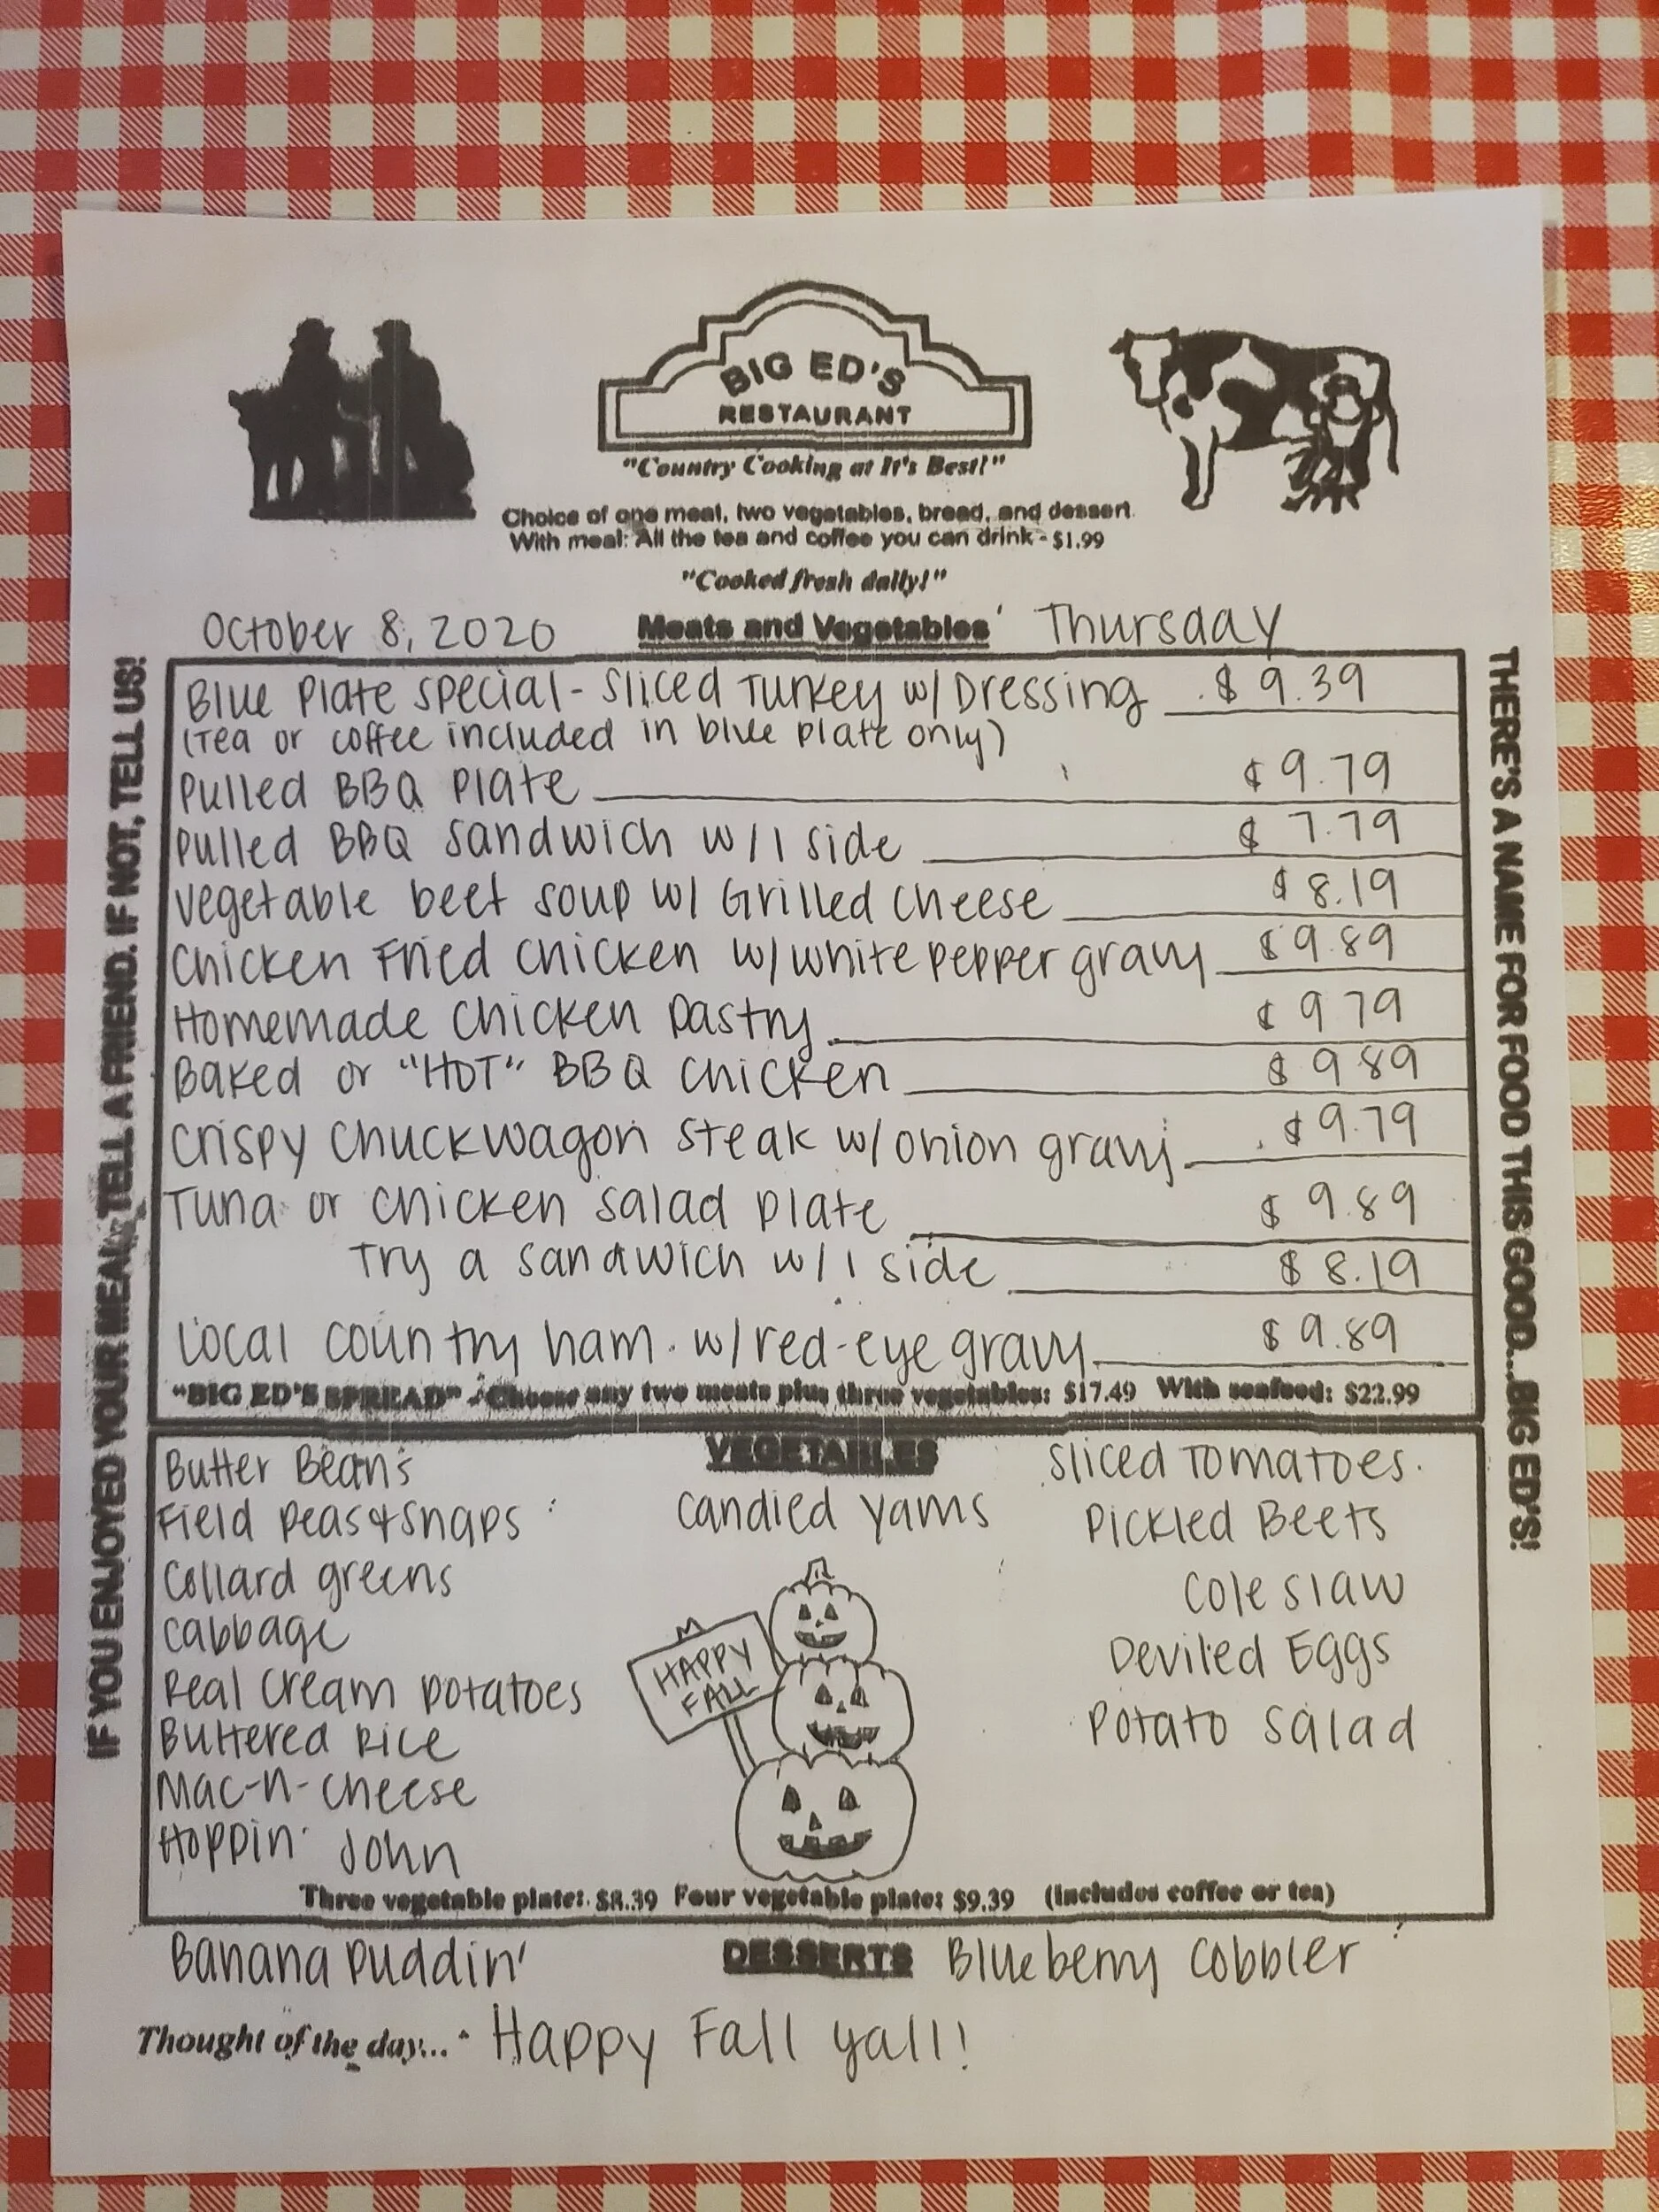 BIG ED'S
RESTAURANT
"Country Cooking at It's Best!"
Choice of one meat, two vegetables, bread, and dessert.
With meal: All the tea and coffee you can drink - $1.99
"Cooked fresh daily!"
October 8, 2020 Meats and Vegetables Thursday
Blue Plate Special - Sliced Turkey w/ Dressing $9.39
(Tea or coffee included in blue plate only)
Pulled BBQ Plate $9.79
Pulled BBQ Sandwich w/ 1 side $7.79
Vegetable beef soup w/ Grilled cheese $8.19
Chicken Fried Chicken w/ white pepper gravy $9.89
Homemade Chicken Pastry $9.79
Baked or "HOT" BBQ Chicken $9.89
Crispy Chuckwagon Steak w/ onion gravy $9.79
Tuna or Chicken Salad Plate $9.89
Try a sandwich w/ 1 side $8.19
Local Country ham w/ red-eye gravy $9.89
"BIG ED'S SPREAD" - Choose any two meats plus three vegetables: $17.49 With seafood: $22.99
VEGETABLES
Butter Bean's
Field Peas & Snaps
Collard greens
Cabbage
Real Cream Potatoes
Buttered Rice
Mac-n-cheese
Hoppin' John
Candied Yams
HAPPY
FALL
Sliced Tomatoes
Pickled Beets
Cole Slaw
Deviled Eggs
Potato Salad
Three vegetable plate: $8.39 Four vegetable plate: $9.39 (Includes coffee or tea)
Banana Puddin' DESSERTS Blueberry Cobbler
Thought of the day... Happy Fall yall!
IF YOU ENJOYED YOUR MEAL, TELL A FRIEND. IF NOT, TELL US!
THERE'S A NAME FOR FOOD THIS GOOD...BIG ED'S!